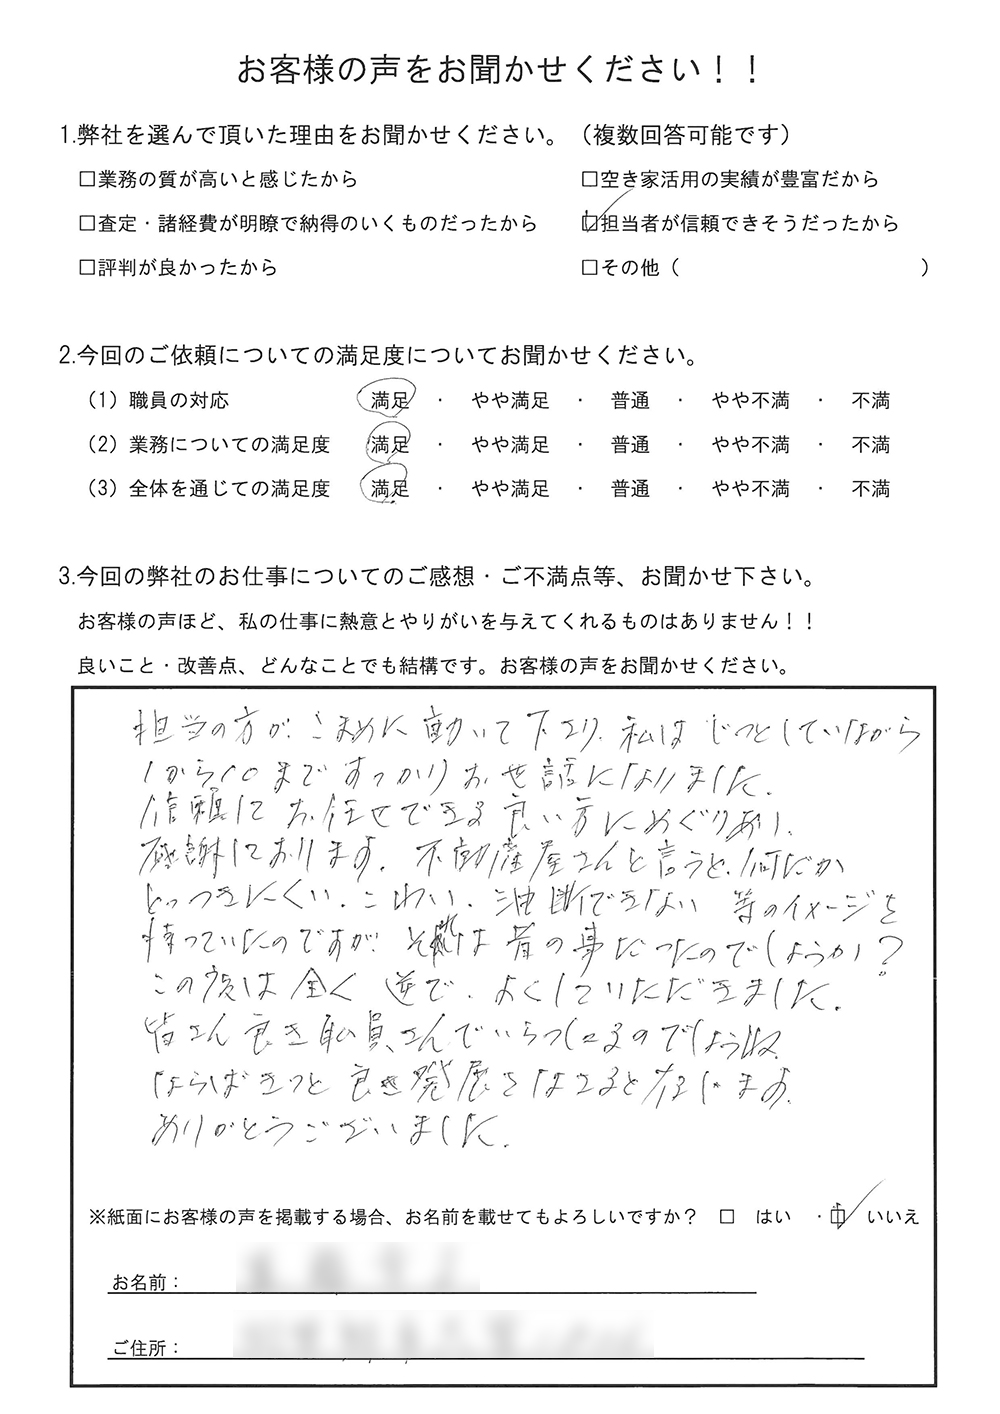 お客様の声をお聞かせください！！
1.弊社を選んで頂いた理由をお聞かせください。（複数回答可能です）
□業務の質が高いと感じたから　□空き家活用の実績が豊富だから
□査定・諸経費が明瞭で納得のいくものだったから　☑担当者が信頼できそうだったから
□評判が良かったから　□その他（　　　）
2.今回のご依頼についての満足度についてお聞かせください。
（1）職員の対応　満足　・　やや満足　・　普通　・　やや不満　・　不満
（2）業務についての満足度　満足　・　やや満足　・　普通　・　やや不満　・　不満
（3）全体を通じての満足度　満足　・　やや満足　・　普通　・　やや不満　・　不満
3.今回の弊社のお仕事についてのご感想・ご不満点等、お聞かせ下さい。
お客様の声ほど、私の仕事に熱意とやりがいを与えてくれるものはありません！！
良いこと・改善点、どんなことでも結構です。お客様の声をお聞かせください。
担当の方が、こまめに動いて下さり、私はじっとしていながら
1から10まですっかりお世話になりました。
信頼してお任せできる良い方にめぐりあい、
感謝しております。不動産屋さんと言うと、何だか
とっつきにくい、こわい、油断できない 等のイメージを
持っていたのですが、それは昔の事だったのでしょうか？
この度は全く逆で、よくしていただきました。
皆さん良き職員さんでいらっしゃるのでしょうね。
ならばきっと良き発展をなさると存じます。
ありがとうございました。
※紙面にお客様の声を掲載する場合、お名前を載せてもよろしいですか？　□　はい　・☑　いいえ
お名前：
ご住所：